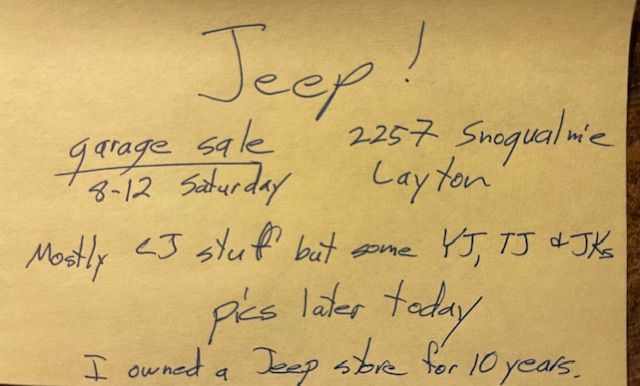 Jeep!
garage sale 2257 Snoqualmie
8-12 Saturday Layton
Mostly CJ stuff but some YJ, TJ & JKs
pics later today
I owned a Jeep store for 10 years.